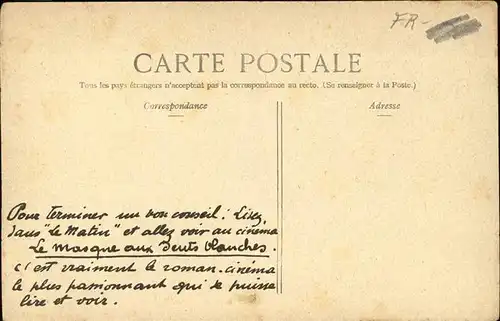 FR-
CARTE POSTALE
Tous les pays étrangers n'acceptent pas la correspondance au recto. (Se renseigner à la Poste.)
Correspondance
Adresse
Pour terminer un bon conseil: Lisez
dans "Le Matin" et allez voir au cinéma
Le Masque aux Dents blanches.
C'est vraiment le roman-cinéma
le plus passionnant qui se puisse
lire et voir.